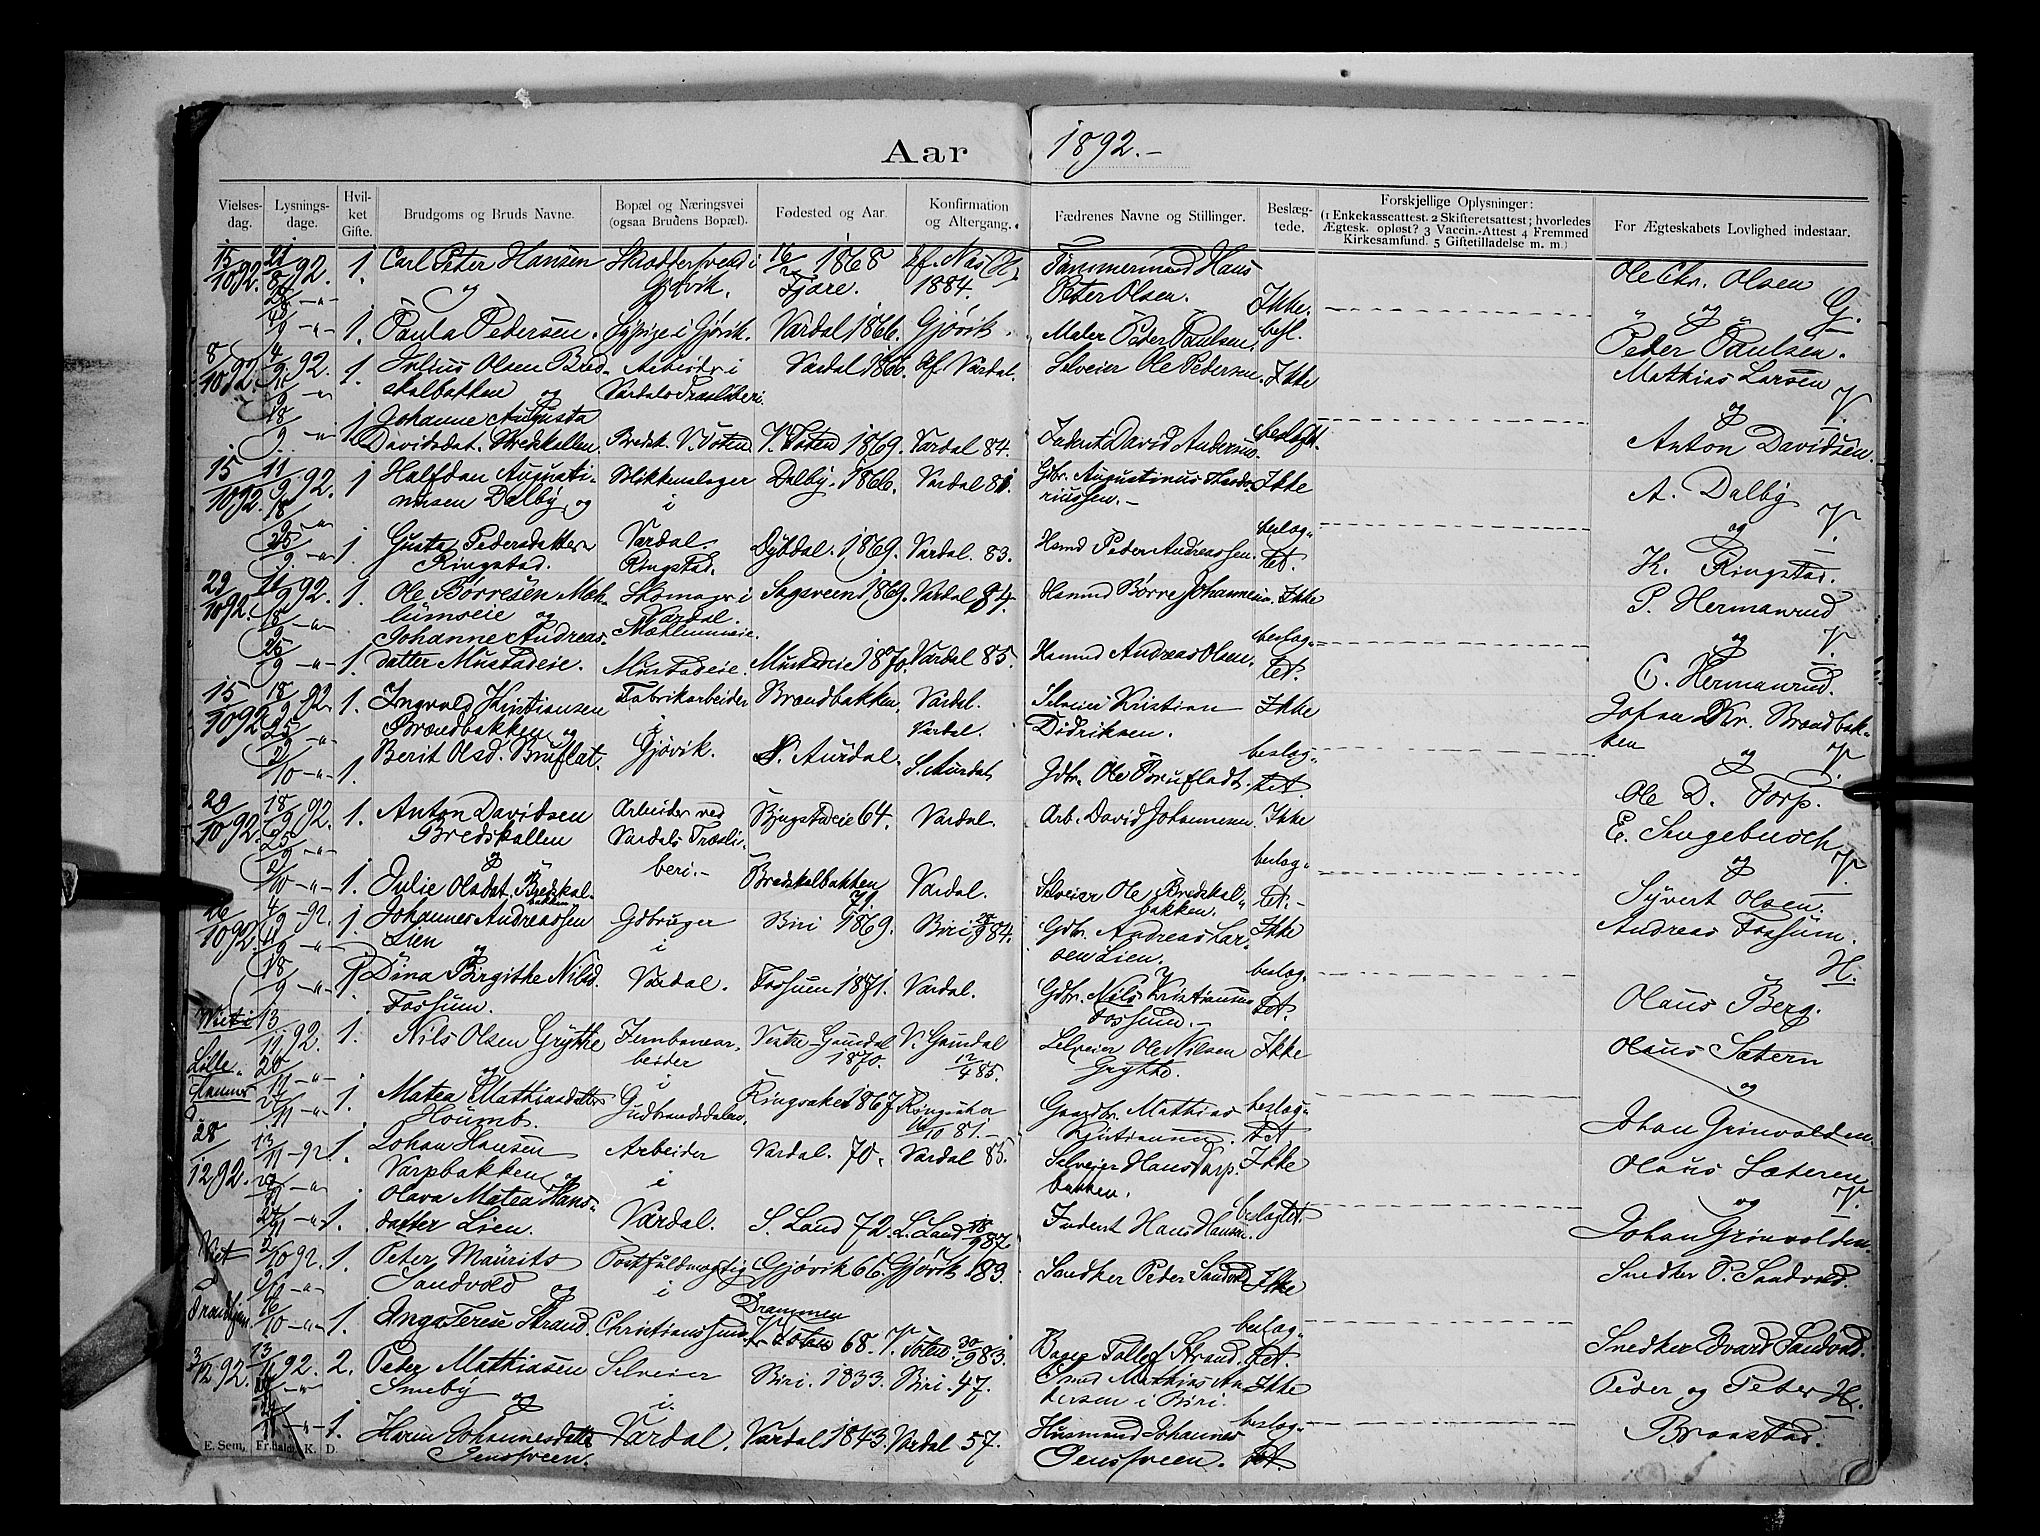 Aar 1892.-
Vielses-dag. Lysnings-dage. Hvil-ket Gifte. Brudgoms og Bruds Navne. Bopæl og Næringsvei (ogsaa Brudens Bopæl). Fødested og Aar. Konfirmation og Altergang. Fædrenes Navne og Stillinger. Beslæg-tede. Forskjellige Oplysninger: (1 Enkekasseattest. 2 Skifteretsattest; hvorledes Ægtesk. opløst? 3 Vaccin.-Attest 4 Fremmed Kirkesamfund. 5 Giftetilladelse m. m.) For Ægteskabets Lovlighed indestaar.
15/10 92. 21/8 92. 1. Carl Peter Hansen 1868 Næs Tømmermand Hans Ole Chr. Olsen
og Gjøvik. Fjære. 1884. Peter Olsen. Ikke og G.
4/9 1. Paula Pedersen. Sypige i Gjøvik. Vardal 1866. Gjøvik. Maler Peder Paulsen. besl. Peder Paulsen.
8/10 92. 4/9 92. 1. Julius Olsen Bred- Arbeider i Vardal 1866. Vardal. Selveier Ole Pedersen. Ikke Mathias Larsen
skalbakken og Vardals Træsliberi. og V.
18/9 1. Johanne Augusta
Davidsdat. Bredskallen. Bredsk. V. Toten. V. Toten 1869. Vardal 84. Inderst David Andersen. beslægt. Anton Davidsen.
15/10 92. 11/9 92. 1 Halfdan Augusti- Blikkenslager Dalby. 1866. Vardal 81. Gbr. Augustinus Ikke A. Dalby
nusen Dalby og i V.
25/9 1. Gusta Pedersdatter Vardal. Dybdal. 1869. Vardal. 83. Hsmd Peder Andreassen. beslæg- og
Ringstad. Ringstad. tet. K. Ringstad.
29/10 92. 11/9 92. 1. Ole Børresen Mæh- Skomager i Sagsveen 1869. Vardal 84. Hsmd Børre Johannesen. Ikke P. Hermanrud
lumseie og Vardal. og V.
Johanne Andreas- Mæhlumseie. beslæg-
25/9 1. datter Mustadeie. Mustadeie. Mustadeie 1870. Vardal 85. Hsmd Andreas Olsen. tet. C. Hermanrud.
15/10 92 18/9 92. 1. Ingvald Kristiansen Fabrikarbeider Brændbakken. Vardal. Selveier Kristian Ikke Johan Kr. Brændbak-
25/9 Brændbakken og i Vardal. Didriksen. ken og V.
2/10 1. Berit Olsd. Bruflat. Gjøvik. S. Aurdal. S. Aurdal Gdbr. Ole Brufladt. beslæg-tet. Ole D. Torp.
29/10 92. 18/9 92. 1. Anton Davidsen Arbeider ved Bjugstadeie 64. Vardal. Arb. David Johannesen. Ikke E. Sugebusch
25/9 Bredskallen Vardals Træsli- og V.
2/10 1. og Julie Olsdat. Bredskal- beri.- Bredskalbakken Vardal. Selveier Ole Bredskal- beslæg- Syvert Olsen.
bakken 71. bakken. tet.-
26/10 92. 4/9 92. 1. Johannes Andreassen Gdbruger Biri 1869. Biri 84. Gdbr. Andreas Lar- Ikke Andreas Fossum.
11/9 Lien i sen Lien. H.
18/9 og Dina Birgithe Nilsd. Vardal. Fossum 1871. Vardal. Gdbr. Nils Kristiansen beslæg-tet.
Fossum. Fossum.- Olaus Berg.
Viet i 13/11 92. 1. Nils Olsen Grythe Jernbanear- Vestre Gausdal V. Gausdal Selveier Ole Nilsen Ikke Olaus Sætern
Lille- 20/11 og beider 1870. 12/4 85. Grytte. og
hammer 27/11 1. Matea Mathiasdatter i Gudbrandsdalen. Ringsaker 1867. Ringsaker Gaardbr. Mathias beslæg-
Houmb. 81.- Kristiansen. tet Johan Grinvolden.
28/12 92. 13/11 92. 1. Johan Hansen Arbeider Vardal. 70. Vardal 85. Selveier Hans Varp- Ikke Olaus Sæteren
20/11 Varpbakken og i bakken. og V.
27/11 1. Olava Matea Hans- Vardal. S. Land 72. S. Land 87. Inderst Hans Hansen. beslægtet. Johan Grinvolden.
datter Lien.
Viet 2/10 92. 1. Peter Maurits Postfuldmægtig Gjøvik 66. Gjøvik 83. Snedker Peder Sandvold Ikke Snedker P. Sandvold.
i 9/10 Sandvold og i Drammen
Trondhjem 16/10 1. Inga Terese Strand. Christianssund. V. Toten 68. V. Toten 30/9 83. Bager Tollef Strand. beslæg-tet. Snedker Edvard Sandvold.
3/12 92. 13/11 92. 2. Peter Mathiasen Selveier Biri. 1833. Biri. 47. Mathias An- Ikke Peder og Peter H.
Smeby og i. dersen i Biri.
27/11 1. Karen Johannesdatter Vardal. Vardal 1843. Vardal 57. Husmand Johannes beslæg- Braastad.
Jensveen. Jensveen. tet.
E. Sem, Fr.hald. K. D.